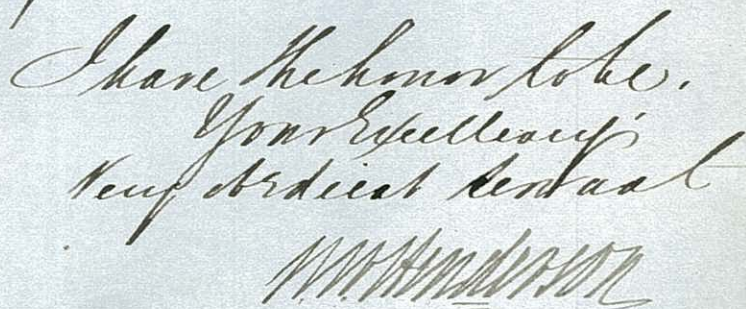 I have the honor to be,
Your Excellency's
Very obedient servant
Henderson